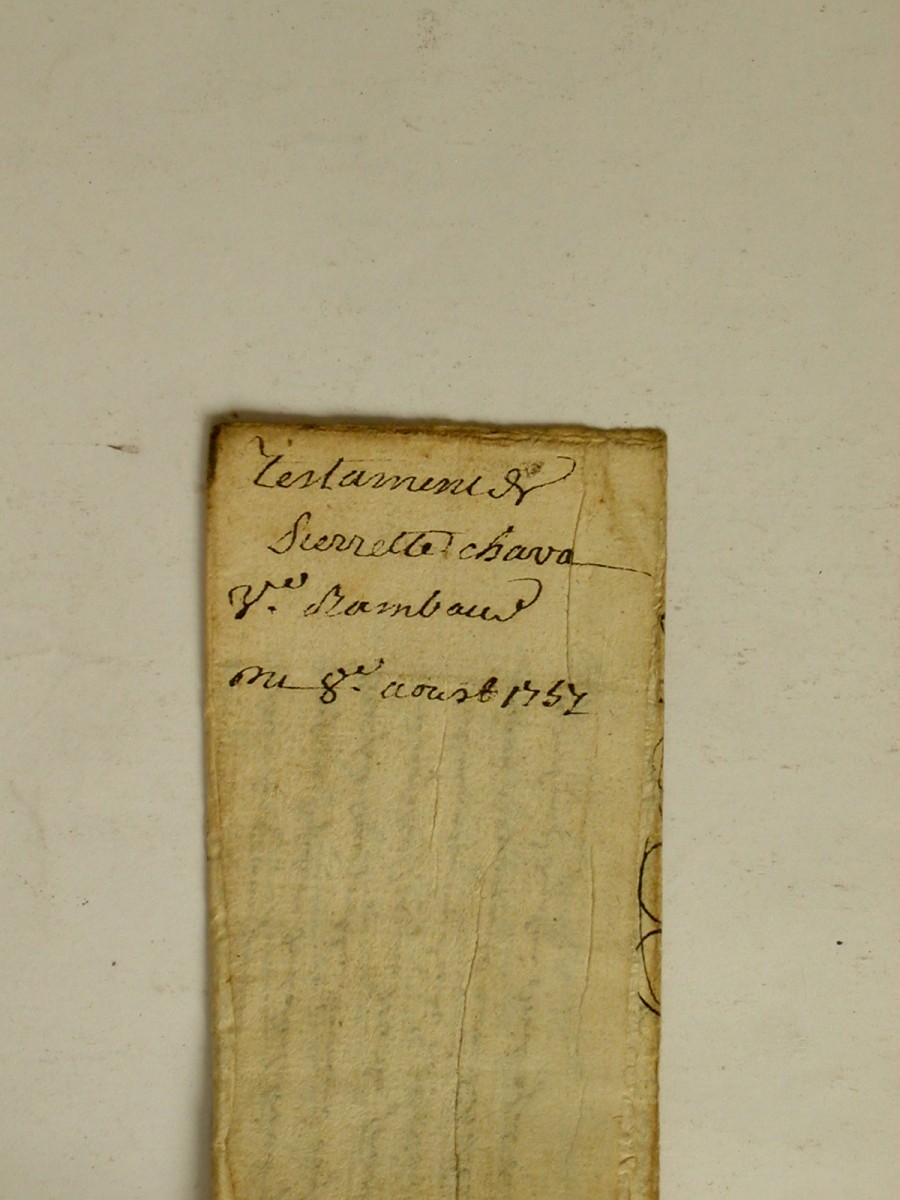 Testament de
Pierrette chava
Vve Rambaud
du 8e aoust 1757